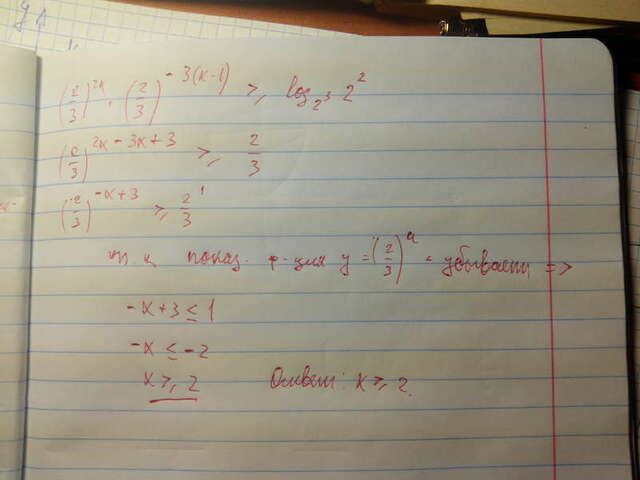 (2/3)^2x · (2/3)^-3(x-1) ≥ log_2^3 2^2
(2/3)^2x-3x+3 ≥ 2/3
(2/3)^-x+3 ≥ 2/3^1
т к показ. ф-ция y = (2/3)^x - убывает =>
-x+3 ≤ 1
-x ≤ -2
x ≥ 2 Ответ: x ≥ 2